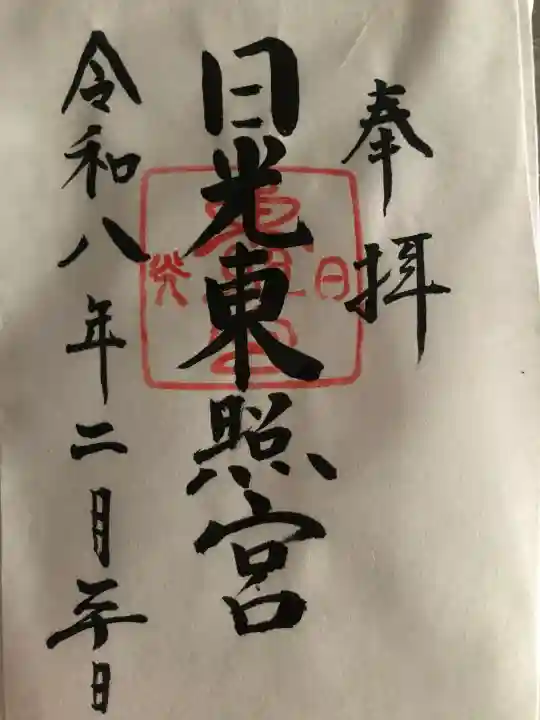 奉拝
日光東照宮
令和八年二月 日
日
光